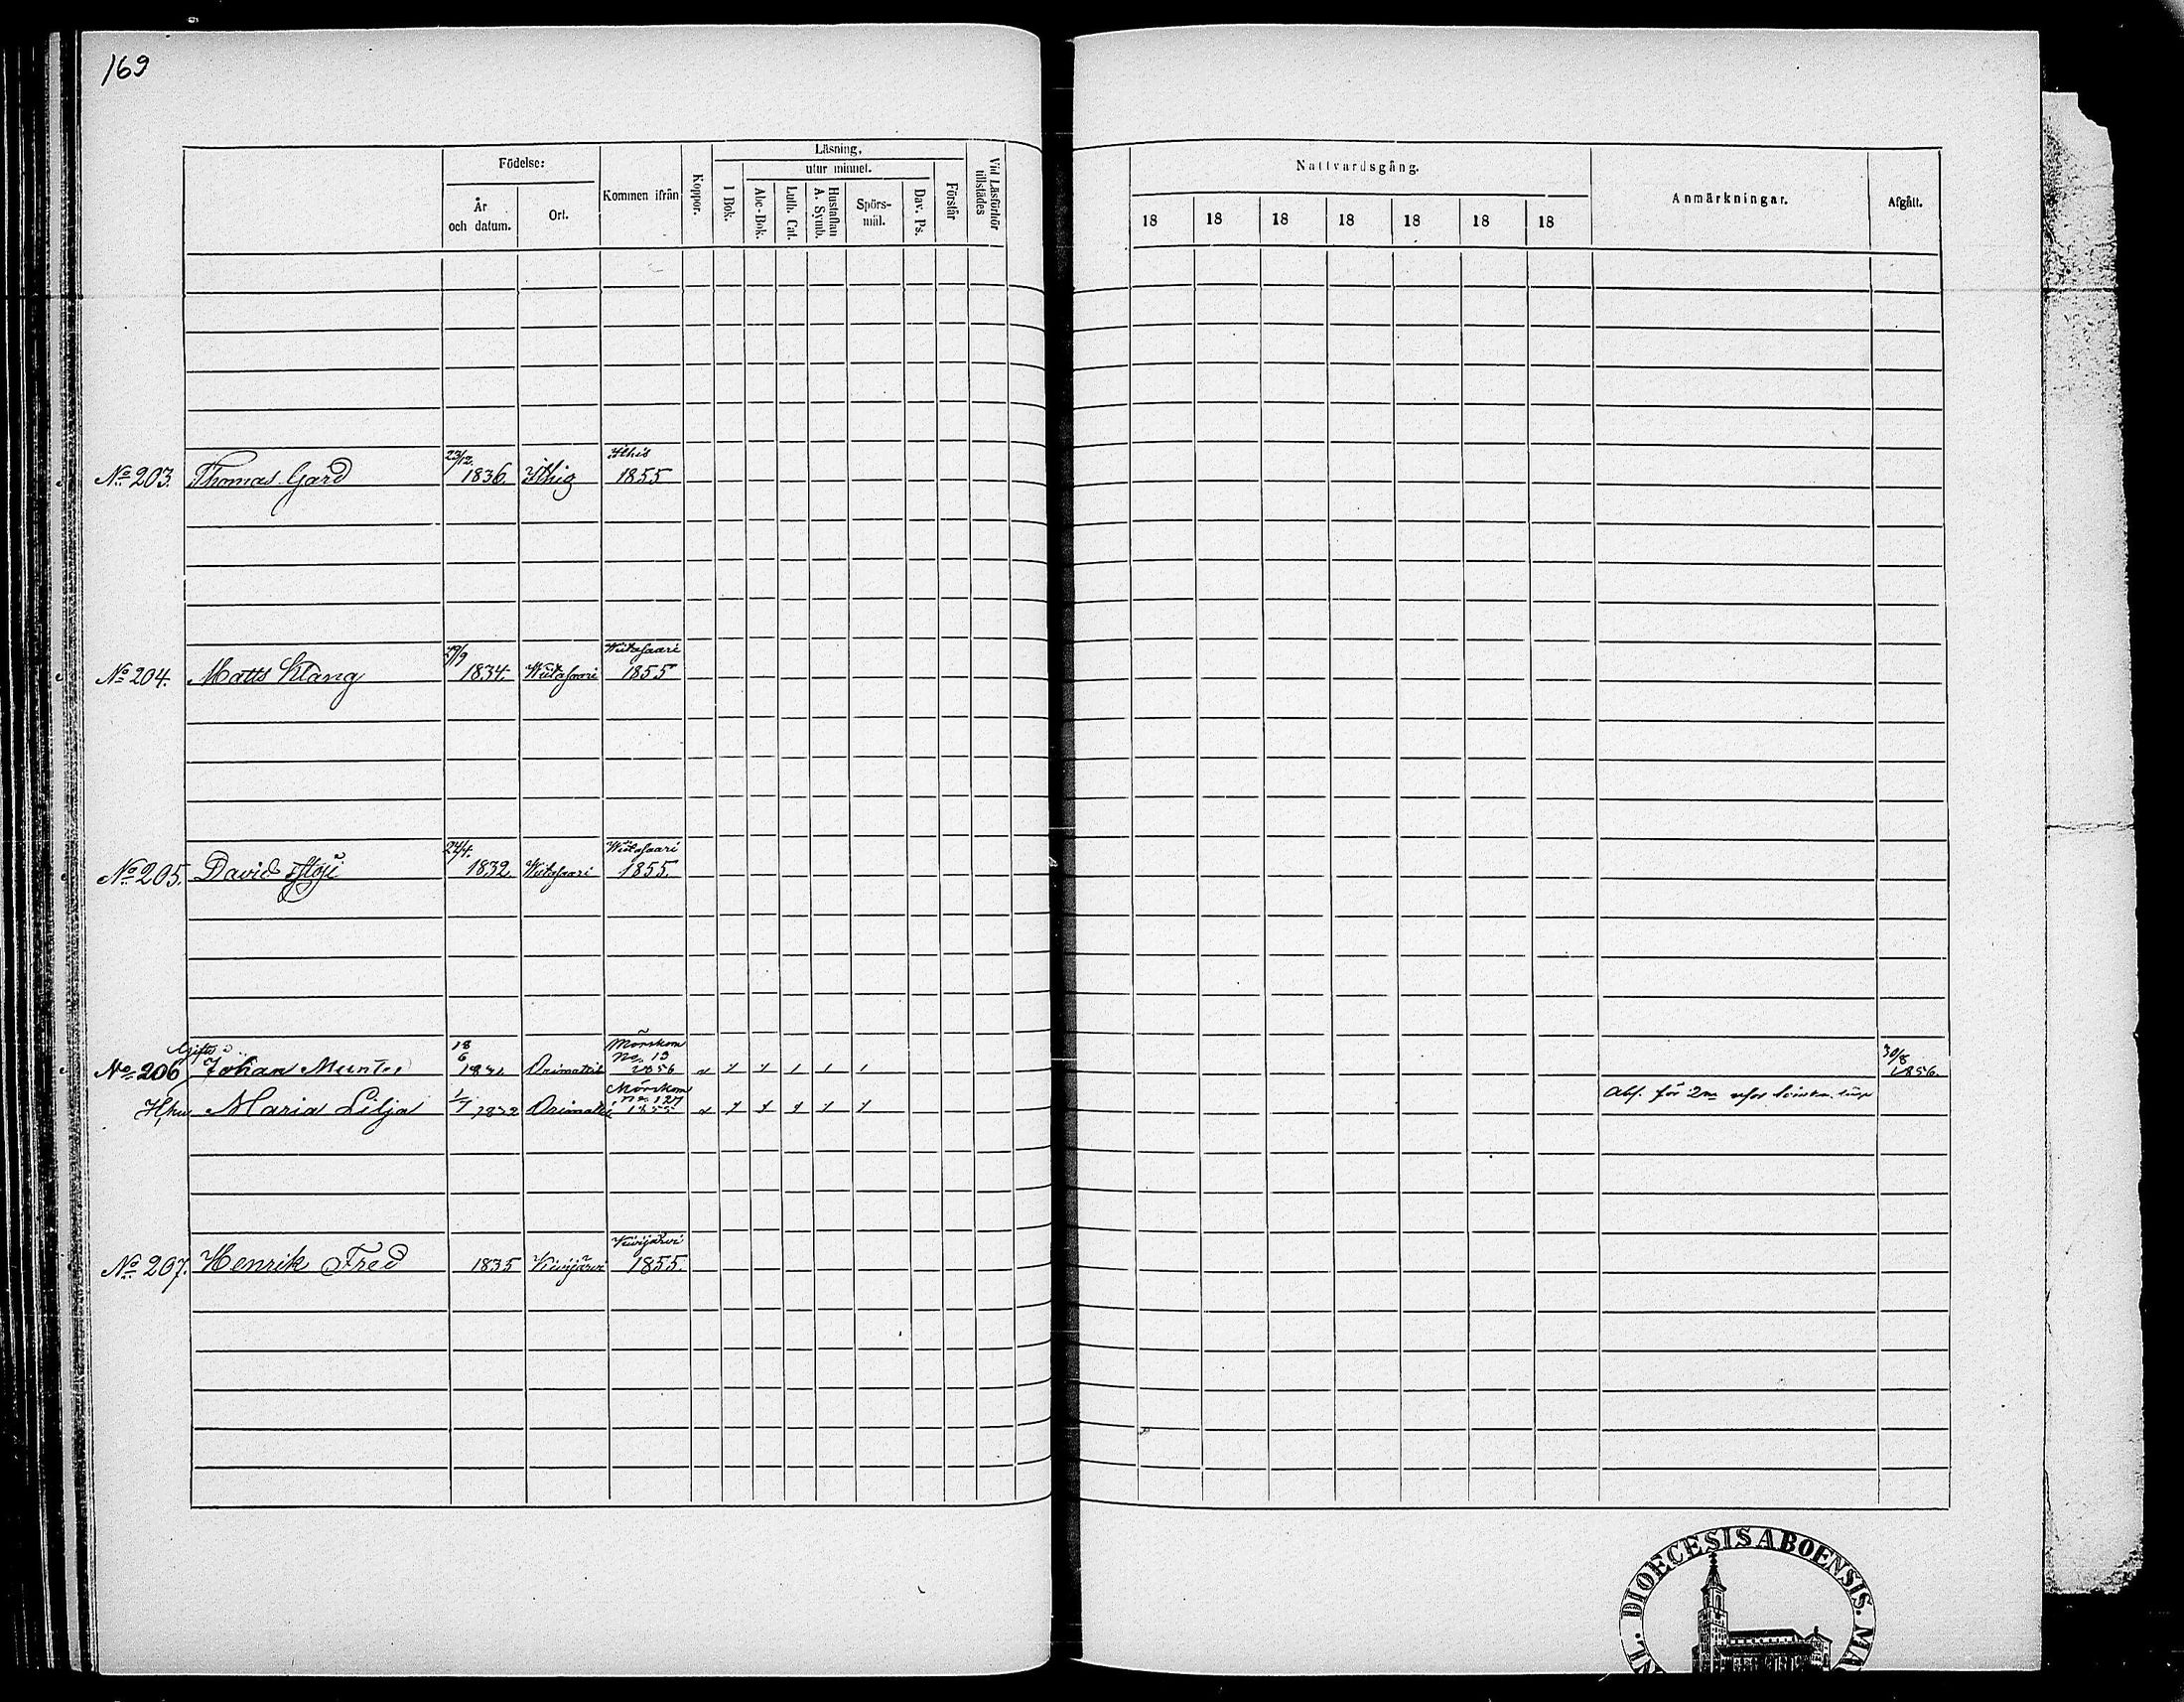 169
Födelse:
År
och datum.
Ort.
Kommen ifrån
Koppor.
Läsning,
utur minnet.
I Bok.
Abc-Bok.
Luth. Cat.
Hustaflan
A. Symb.
Spörs-
mål.
Dav. Ps.
Förstår
Vid Läsförhör
tillstädes
Nattvardsgång.
18 18 18 18 18 18 18
Anmärkningar.
Afgått.
23/12. Ithis
No 203. Thomas Gard 1836. Ithig 1855
29/9 Wiitasaari
No 204. Matts Klang 1834. Wiitasaari 1855
24/4. Wiitasaari
No 205. David 1832. Wiitasaari 1855.
Gifte 18 Mörskom 30/8
6 No. 13
No 206 Johan Munter Orimattila 1856 1856.
Mörskom
No 127
Hu Maria Lilja Orimattila 1855 Abs. för 2
Kivijärvi
No 207. Henrik Fred 1835 Kivijärvi 1855.
DIOECESIS ABOENSIS.